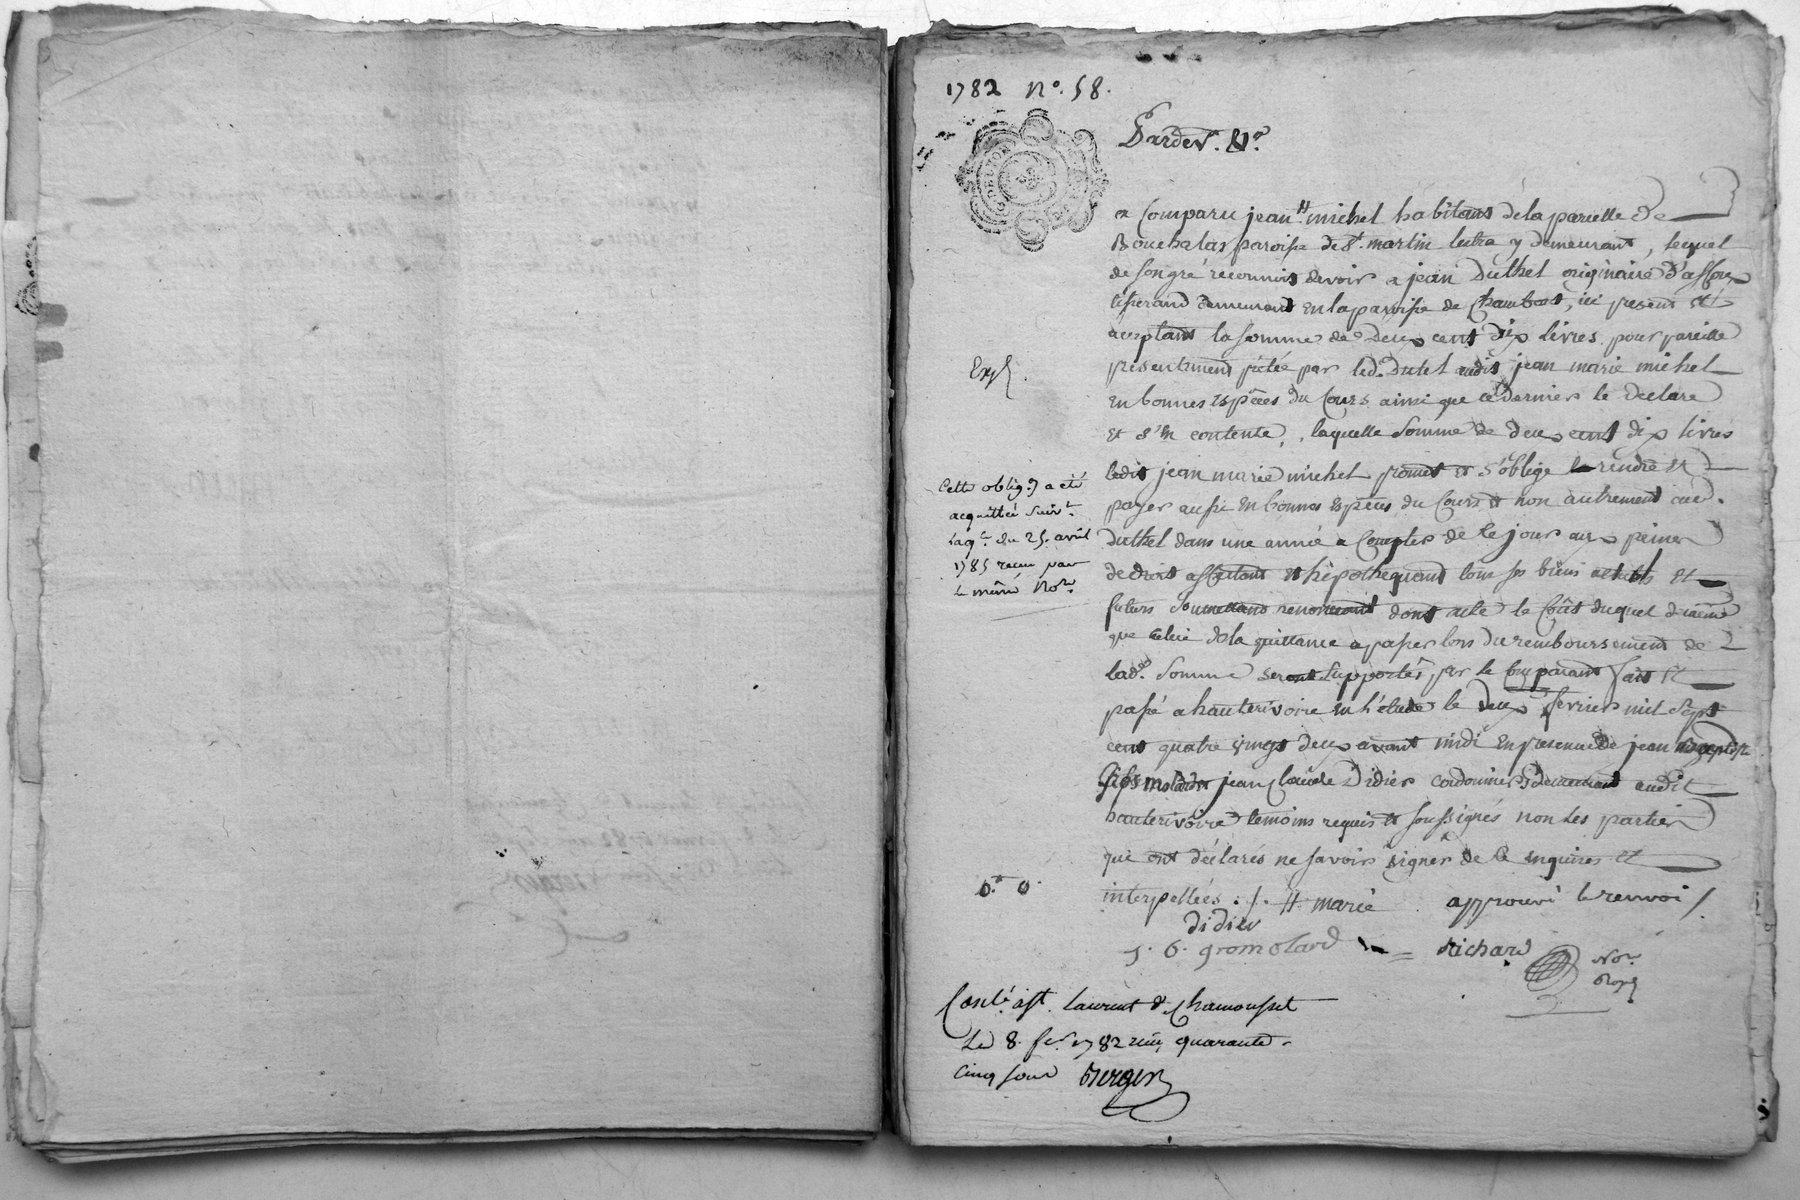 1782 N.º 58.
Pardev.t N.re
a Comparu jean # michel habitant de la parcelle de
Bouchalas paroisse de St. martin lestra y demeurant, lequel
de son gré reconnoit devoir a jean Duthel originaire d'assou
tisserand demeurant en la paroisse de Chambost, ici present et
acceptant la somme de deux cent dix livres pour pareille
presentement prêtée par led. Dutel audit jean marie michel
en bonnes espèces du Cours ainsi que ce dernier le declare
et s'en contente, laquelle somme de deux cent dix livres
ledit jean marie michel promet et s'oblige rendre et
payer aussi en bonnes espèces du Cours et non autrement aud.
Duthel dans une année a Compter de ce jour aux peines
de droit affectant et hipothequant tous ses biens actuels et
futurs Soumettant renonceant dont acte le Coût duquel de même
que celui de la quittance a passer lors du remboursement de
lad.e somme seront supportés par le Comparant fait et
passé a hauterivoire en l'étude le deux fevrier mil sept
cent quatre vingt deux avant midi en presence de jean Baptiste
Gromolard jean Claude Didier cordonniers demeurant audit
hauterivoire temoins requis et soussignés non les parties
qui ont déclarés ne savoir signer de ce enquises et
interpellées ./. # marie approuvé le renvoi /.
didier
j. b. gromolard
Richard N.re Royal
Exp.
Cette oblig.on a été
acquittée suiv.t
l'aq.t du 25. avril
1785 recue par
le même No.re
Conlé à St. Laurent d. Chamousset
Le 8. fev. 1782 reçu quarante
cinq sous Berger